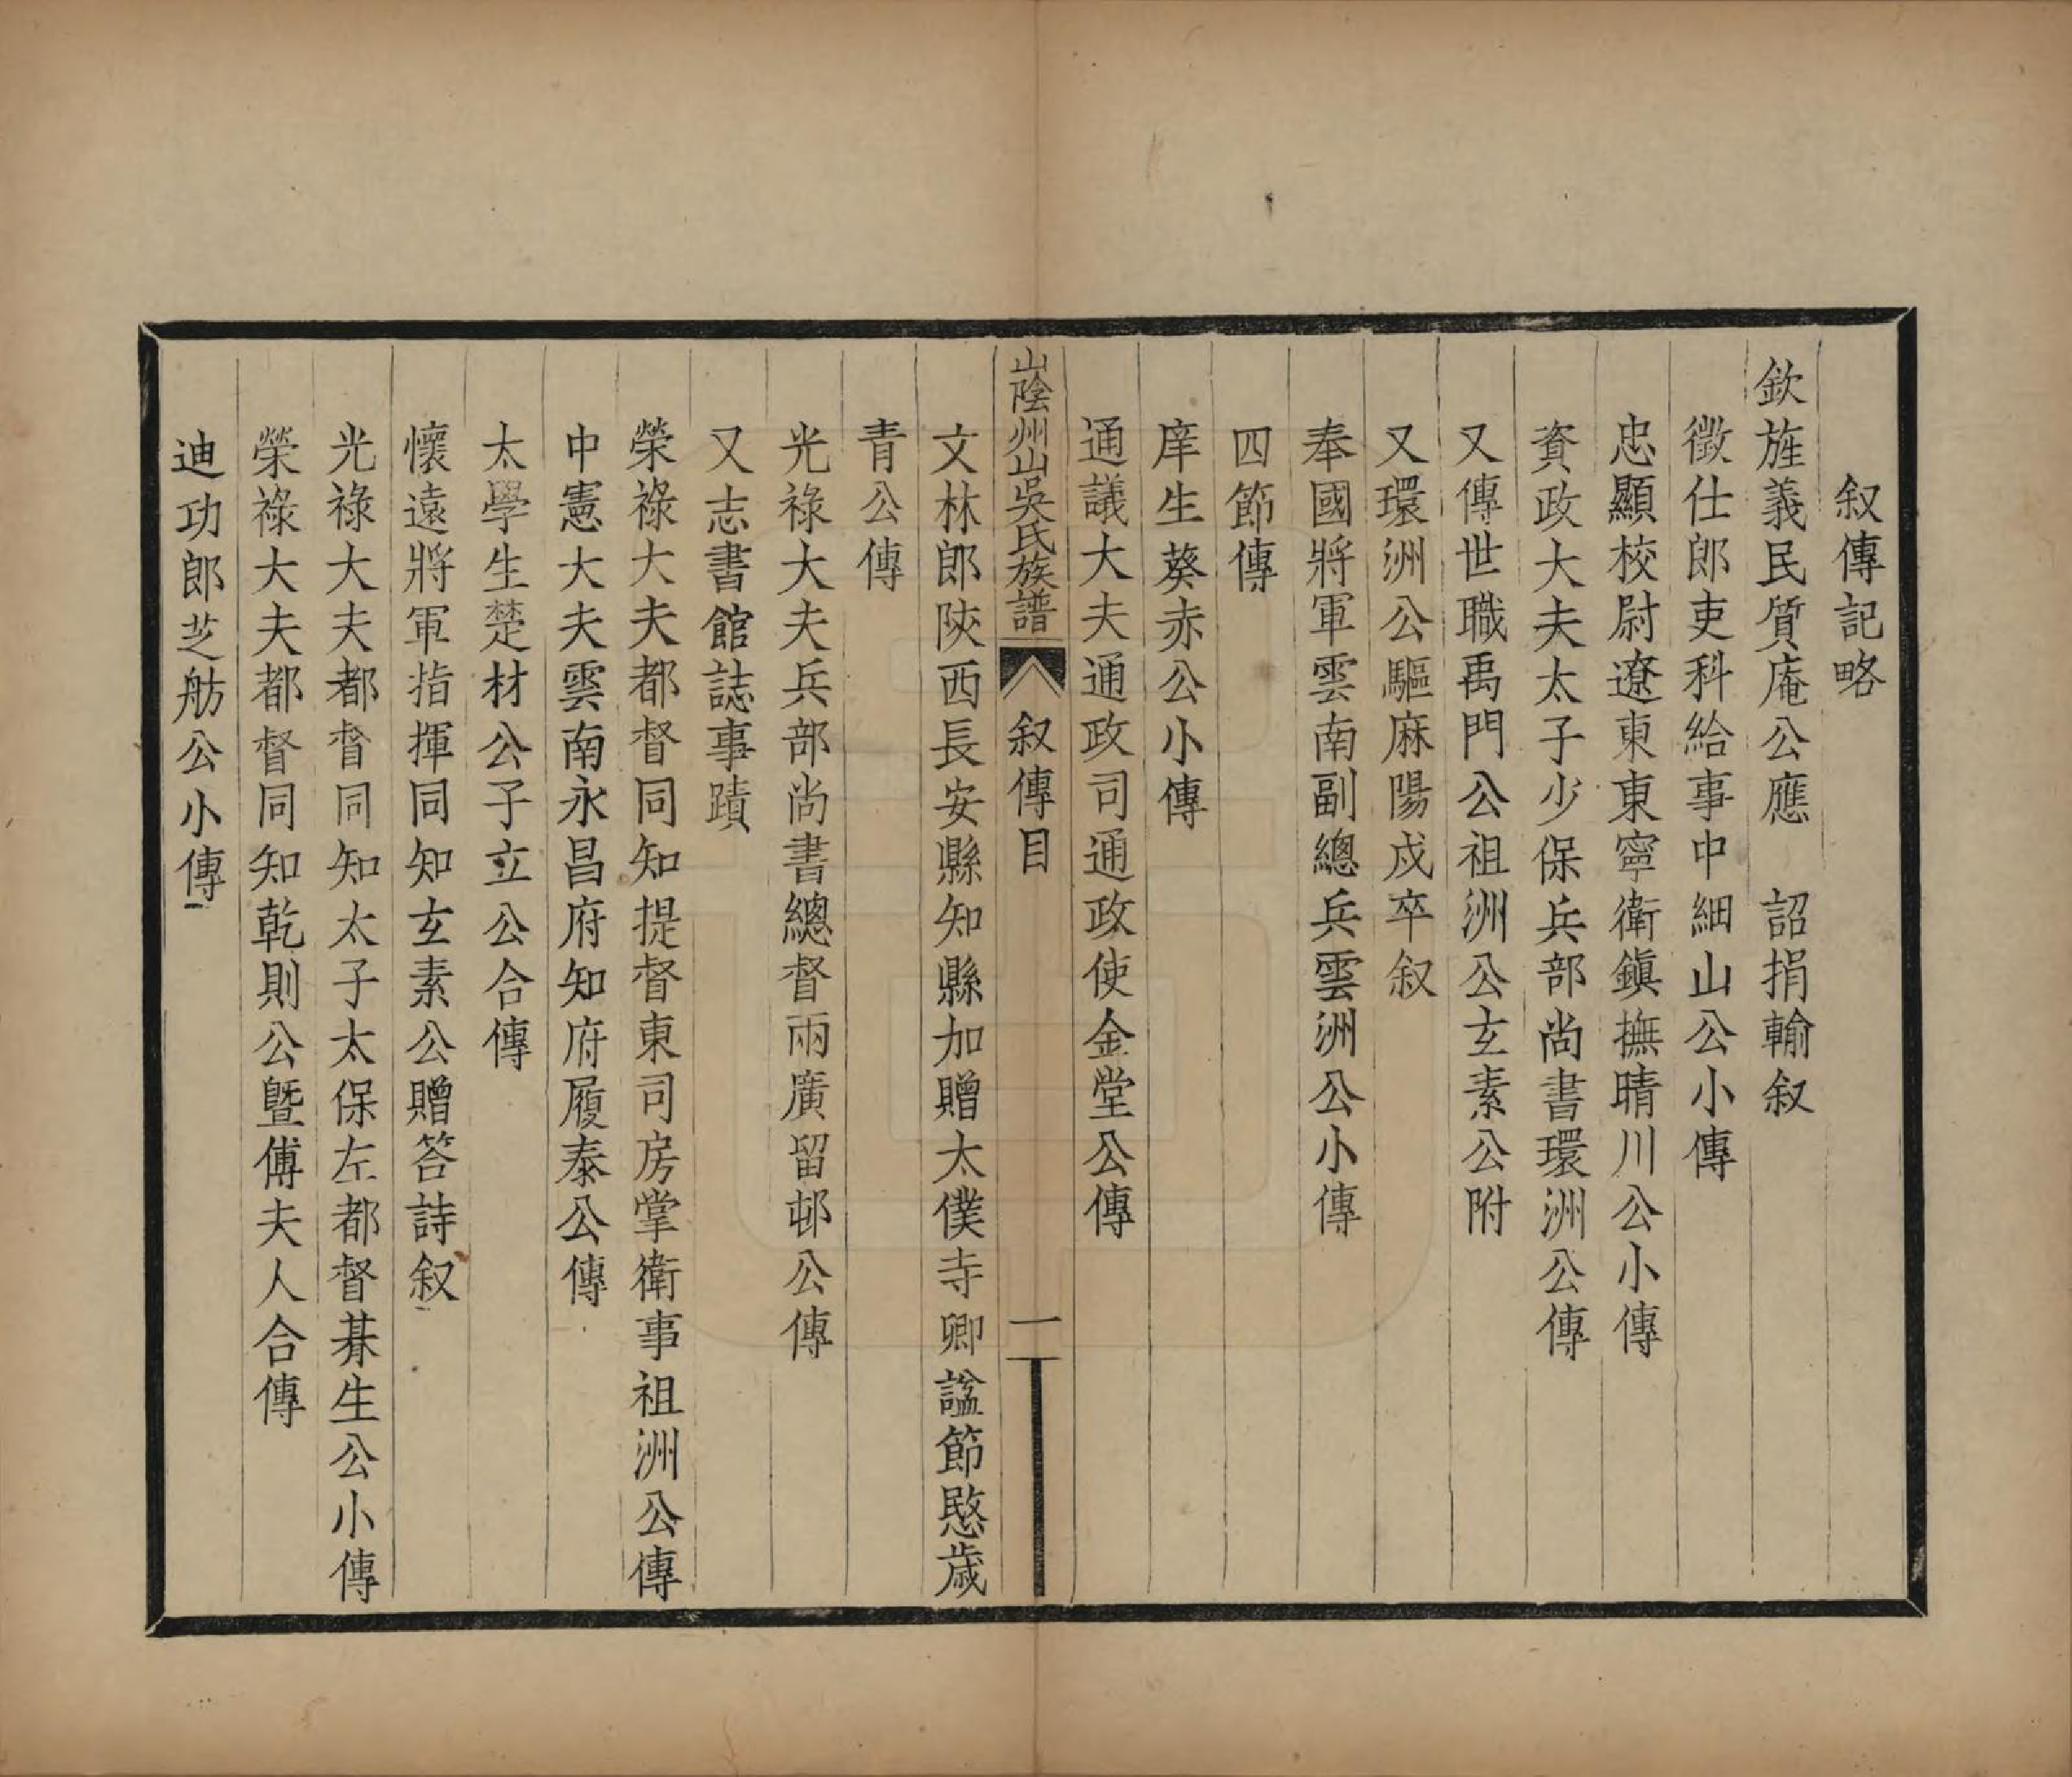 叙傳記略
欽旌義民質庵公應　詔捐輸叙
徵仕郎吏科給事中細山公小傳
忠顯校尉遼東東寧衛鎮撫晴川公小傳
資政大夫太子少保兵部尚書環洲公傳
又傳世職禹門公祖洲公玄素公附
又環洲公驅麻陽戍卒叙
奉國將軍雲南副總兵雲洲公小傳
四節傳
庠生葵赤公小傳
通議大夫通政司通政使金堂公傳
山陰州山吳氏族譜　叙傳目　一
文林郎陝西長安縣知縣加贈太僕寺卿諡節愍歲
青公傳
光祿大夫兵部尚書總督兩廣留邨公傳
又志書館誌事蹟
榮祿大夫都督同知提督東司房掌衛事祖洲公傳
中憲大夫雲南永昌府知府履泰公傳
太學生楚材公子立公合傳
懷遠將軍指揮同知玄素公贈答詩叙
光祿大夫都督同知太子太保左都督朞生公小傳
榮祿大夫都督同知乾則公暨傅夫人合傳
迪功郎芝舫公小傳